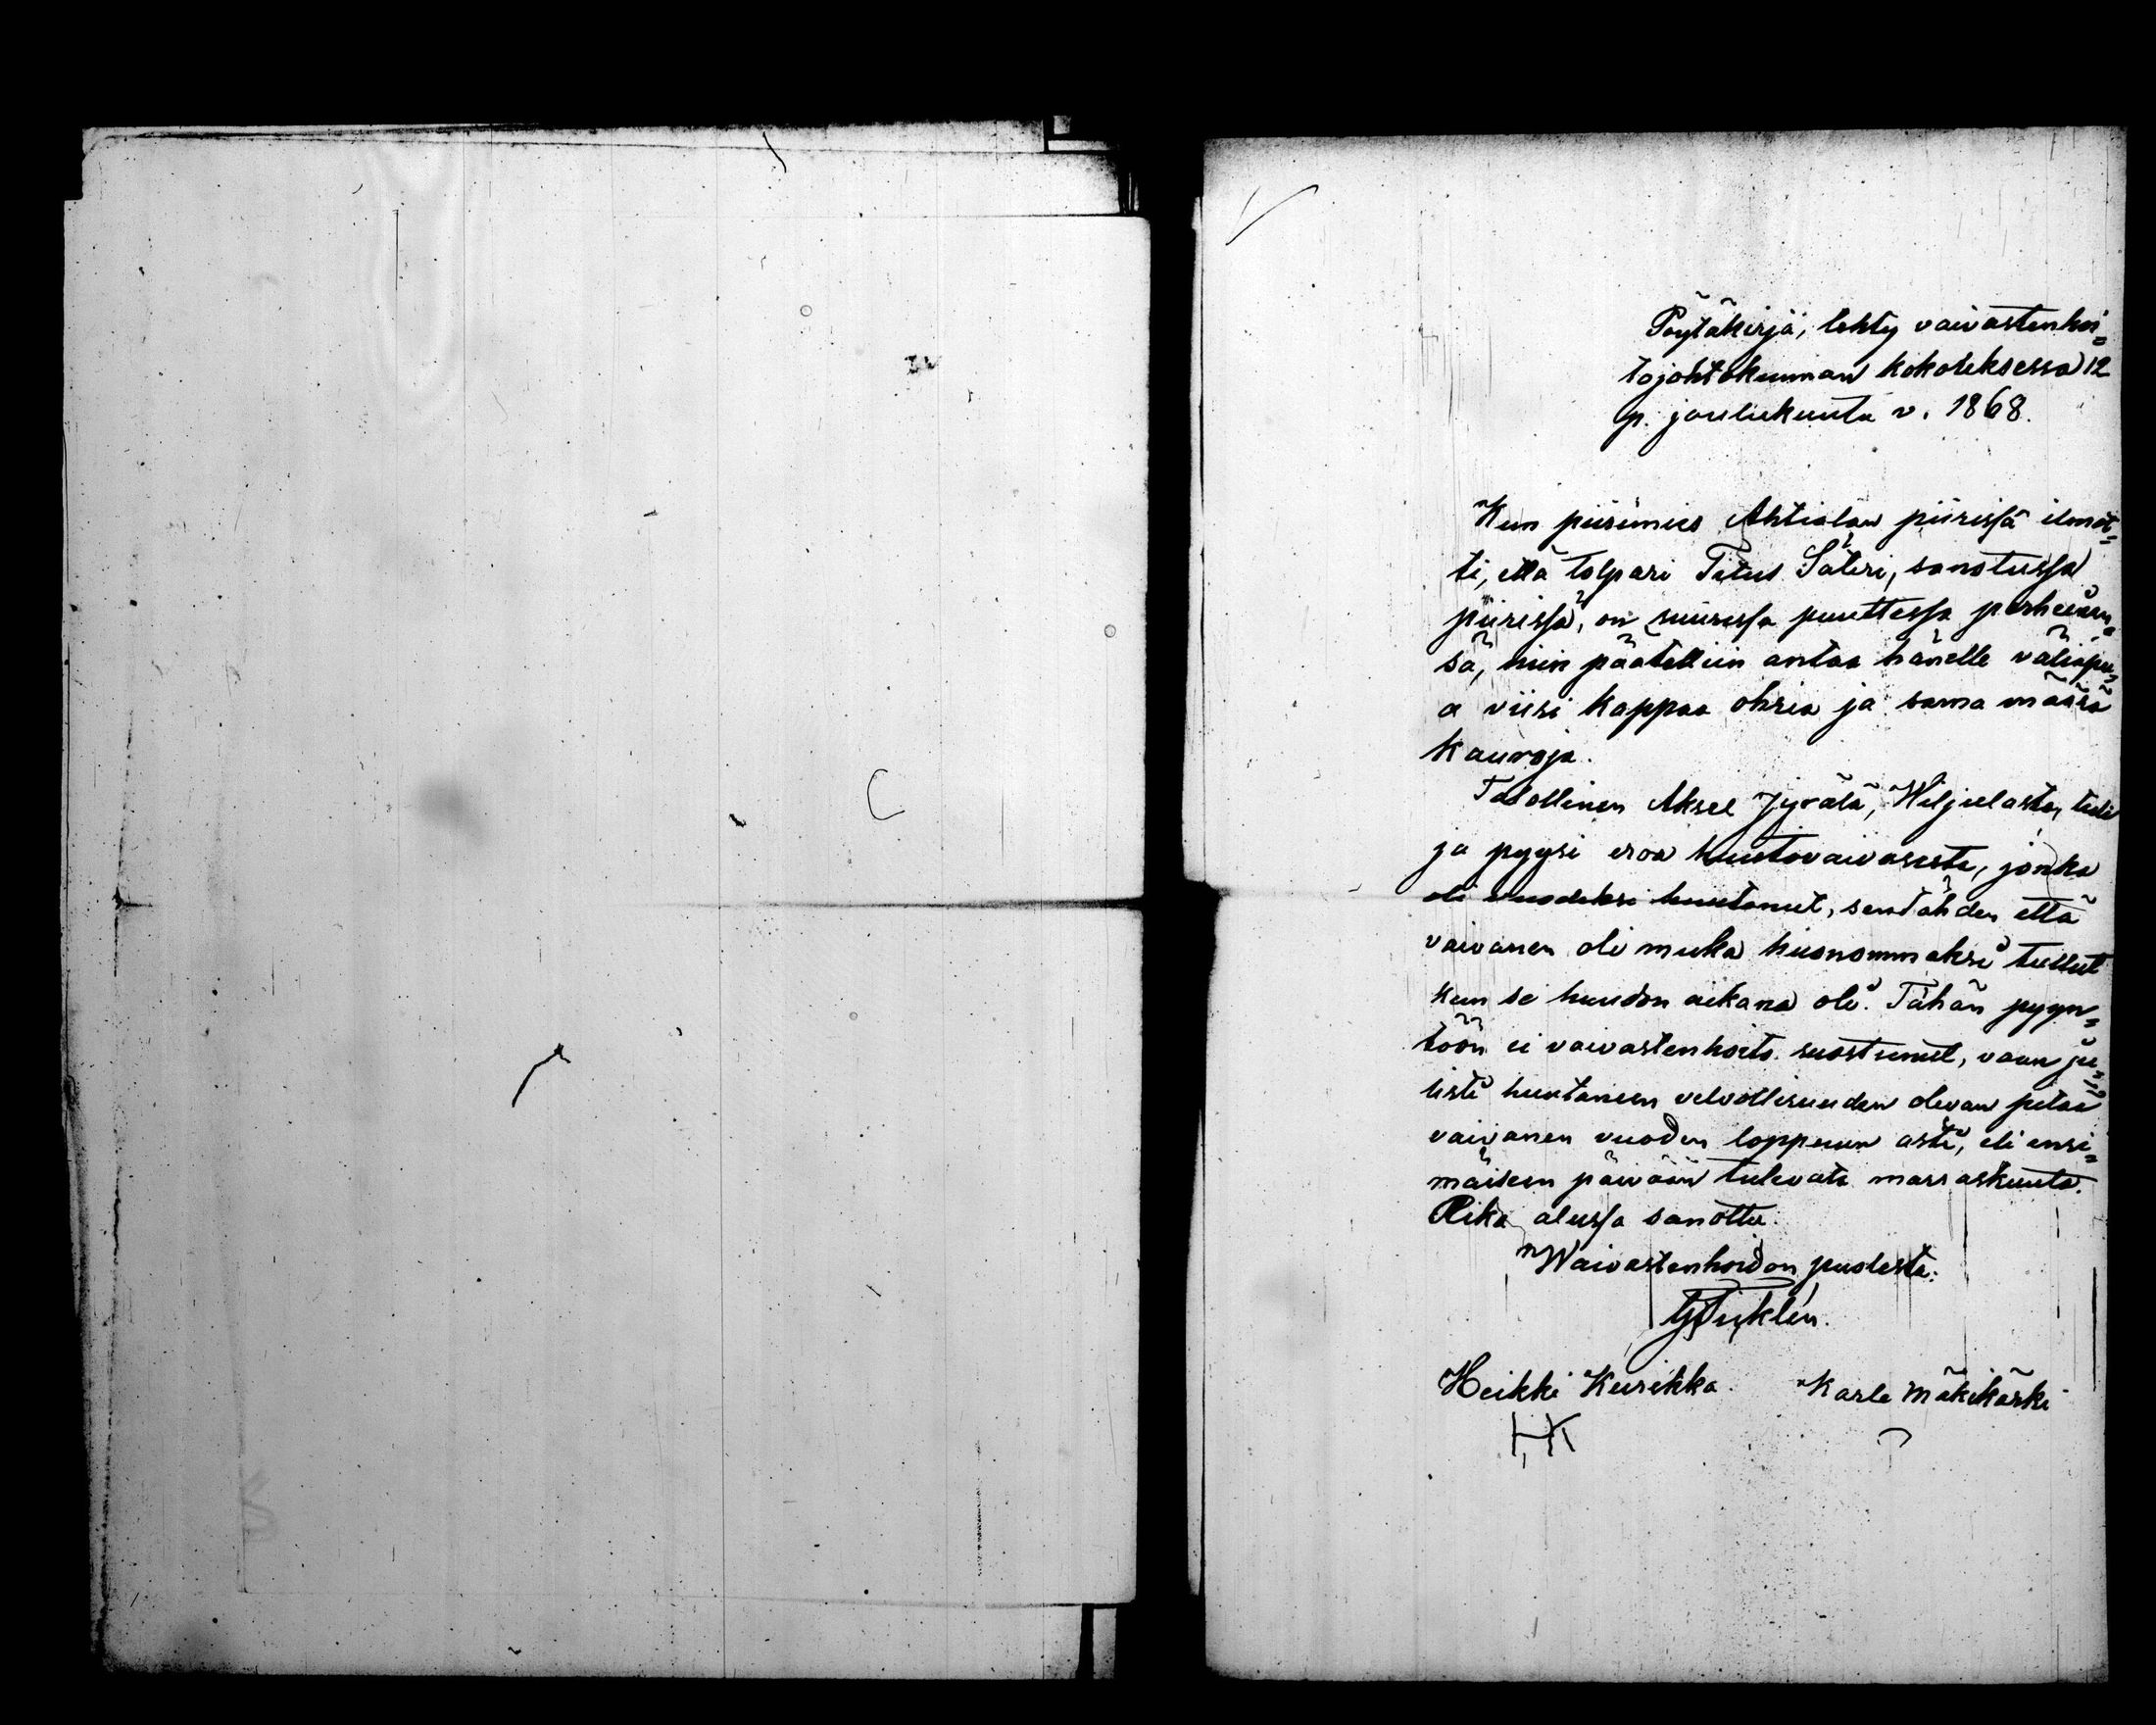 Pöytäkirja, tehty vaivastenhoi=
tojohtokunnan kokouksessa 12
p. joulukuuta v. 1868.
Kun piirimies Ahtialan piirissä ilmot=
ti, että tolpari Titus Säteri, sanotussa
piirissä, on suuressa puuttessa perheinen=
sä, niin päätettiin antaa hänelle väliapu=
a viisi kappaa ohria ja sama määrä
kauroja.
Talollinen Aksel Jyrälä, Wiljulasta, tuli
ja pyysi eroa huutovaivasesta, jonka
oli vuodeksi huutanut, sentähden että
vaivanen oli muka huonommaksi tullut
kun se huudon aikana oli. Tähän pyyn=
töön ei vaivastenhoito suostunut, vaan ju=
listi huutaneen velvollisuuden olevan pitää
vaivanen vuoden loppuun asti, eli ensi=
mäiseen päivään tulevata marraskuuta.
Aika alussa sanottu.
Waivastenhoidon puolesta:
Heikki Kurikka. Karle Mäkikärki
HK